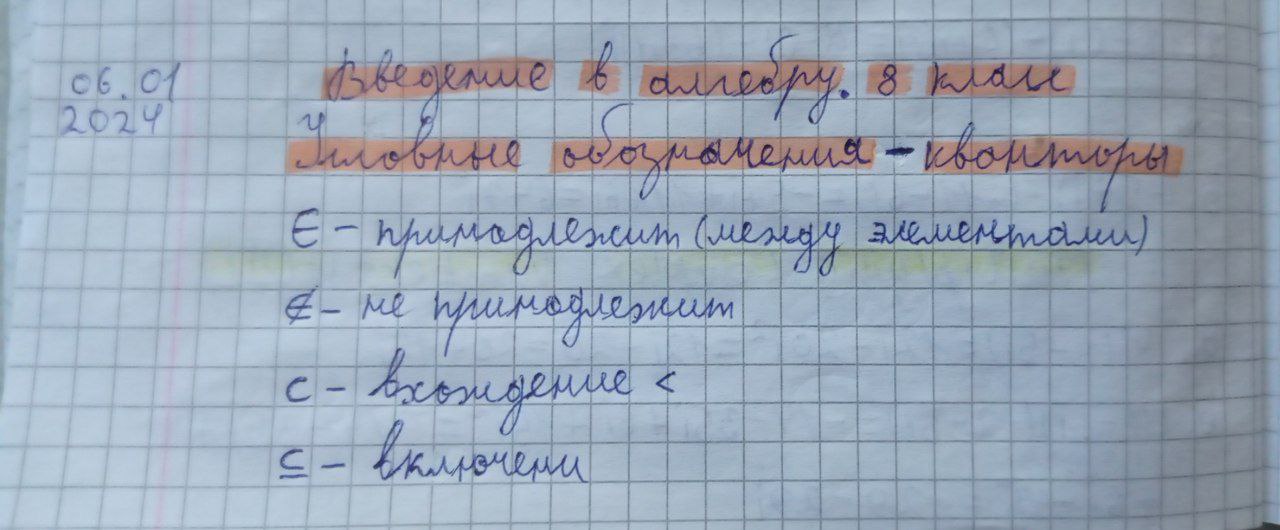 06.01
2024
Введение в алгебру. 8 класс
Условные обозначения – кванторы
∈ – принадлежит (между элементами)
∉ – не принадлежит
⊂ – вхождение <
⊆ – включени